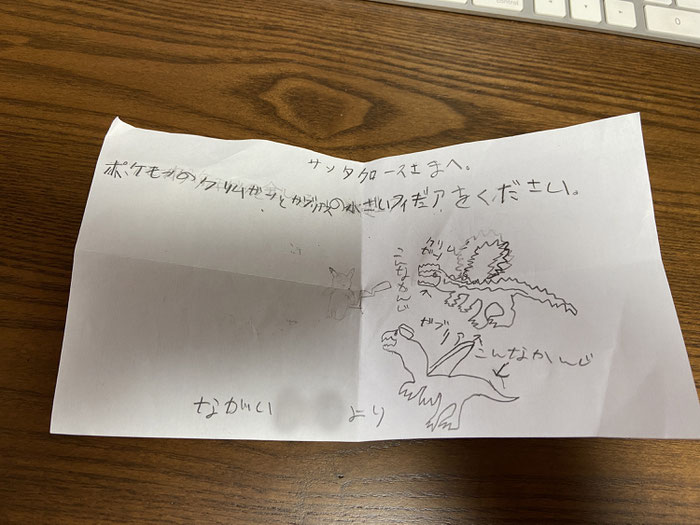 サンタクロースさまへ。
ポケモンのクリムガンとガブリアスの小さいフィギュアをください。
クリム
ガン
こんなかんじ
ガブリアス
こんなかんじ
ながい
より